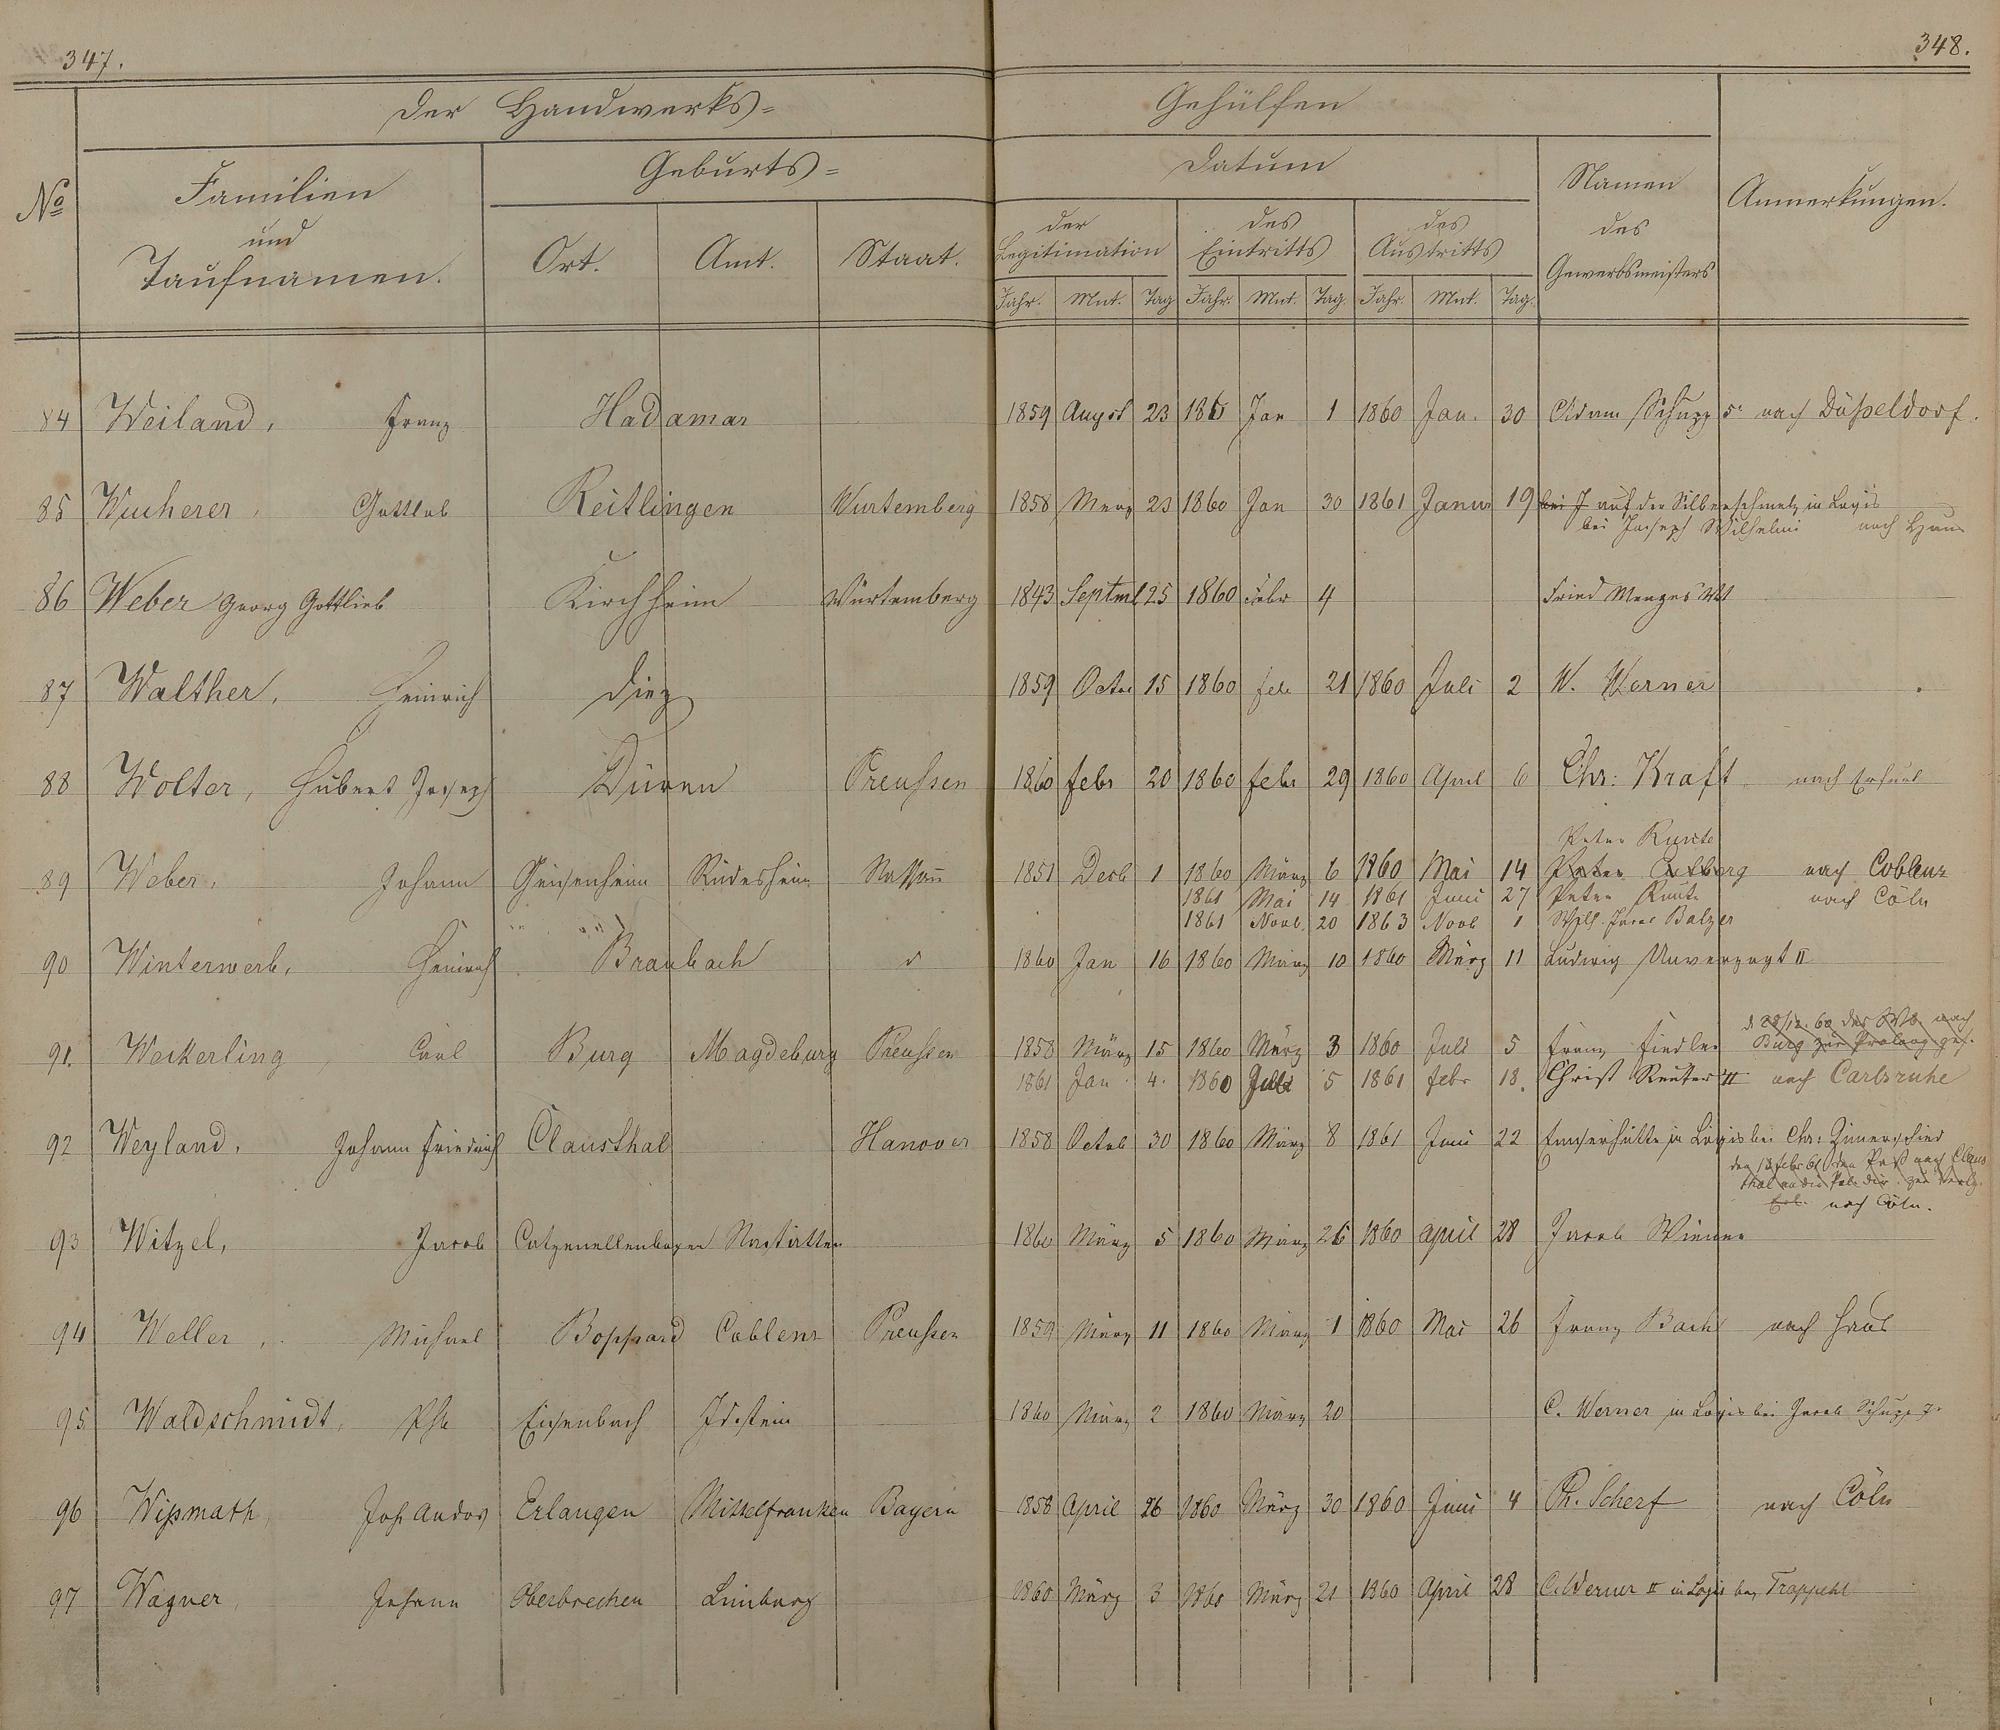 347.
348.
Der Handwerks=
Gehülfen
No
Familien
und
Taufnamen.
Geburts=
Ort.
Amt.
Staat.
Datum
der
Legitimation
des
Eintritts
des
Austritts
Jahr. Mnt. Tag Jahr. Mnt. Tag. Jahr. Mnt. Tag.
Namen
des
Gewerbsmeisters
Anmerkungen.
84 Weiland, Franz Hadamar 1859 August 23 1860 Jan 1 1860 Jan. 30 Adam Schupp nach Düßeldorf.
85 Wucherer, Gottlob Reitlingen Wurtemberg 1858 Merz 23 1860 Jan 30 1861 Janur 19 bei J auf der Silberschmelz in Logis
bei Joseph Wilhelmi nach Haus
86 Weber Georg Gottlieb Kirchheim Würtemberg 1843 Septmb 25 1860 Febr 4 Fried Menges
87 Walther, Heinrich Diez 1859 Octbr 15 1860 feb 21 1860 Juli 2 W. Werner
88 Wolter, Hubert Joseph Düren Preußen 1860 febr 20 1860 febr 29 1860 April 6 Chr: Kraft nach
Peter Kunte
89 Weber, Johann Geisenheim Rüdesheim Nassau 1851 Decb 1 1860 März 6 1860 Mai 14 Peter nach Coblenz
1861 Mai 14 1861 Juni 27 Peter Kunte nach Cöln
1861 Novb. 20 1863 Novb 1 Wilh. Jacob Balzer
90 Winterwerb, Heinrich Braubach d 1860 Jan 16 1860 März 10 1860 März 11 Ludwig Unverzagt II
d. 28/12. 60 das Wb. nach
Burg zur Prolong. ges.
91. Weckerling, Carl Burg Magdeburg Preußen 1858 März 15 1860 März 3 1860 Juli 5 Franz Fiedler
1861 Jan. 4. 1860 Juli 5 1861 febr 18. Christ Reuter II nach Carlsruhe
92 Weyland, Johann Friedrich Clausthal Hanover 1858 Octob 30 1860 März 8 1861 Juni 22 Emserhütte in Logis bei Chr: Zimerschied
den 18 febr 61 den Paß nach Claus
thal an die Pol. dir. zur Verlg.
nach Cöln.
93 Witzel, Jacob Catzenellenbogen Nastätten 1860 März 5 1860 März 26 1860 april 28 Jacob Wiener
94 Weller, Michael Boppard Coblenz Preußen 1859 März 11 1860 März 1 1860 Mai 26 Franz Bach nach Haus
95 Waldschmidt, Ph Eisenbach Idstein 1860 März 2 1860 März 20 C. Werner in Logis bei Jacob Schupp
96 Wißmath, Joh Andos Erlangen Mittelfranken Bayern 1858 April 26 1860 März 30 1860 Juni 4 Ph. Scherf nach Cöln
97 Wagner, Johann Oberbrechen Limburg 1860 März 3 1860 März 21 1860 April 28 C. Werner II in Logis bey Trappehl